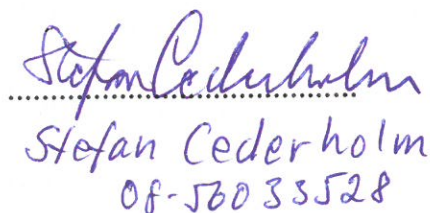 Stefan Cederholm
Stefan Cederholm
08-56033528